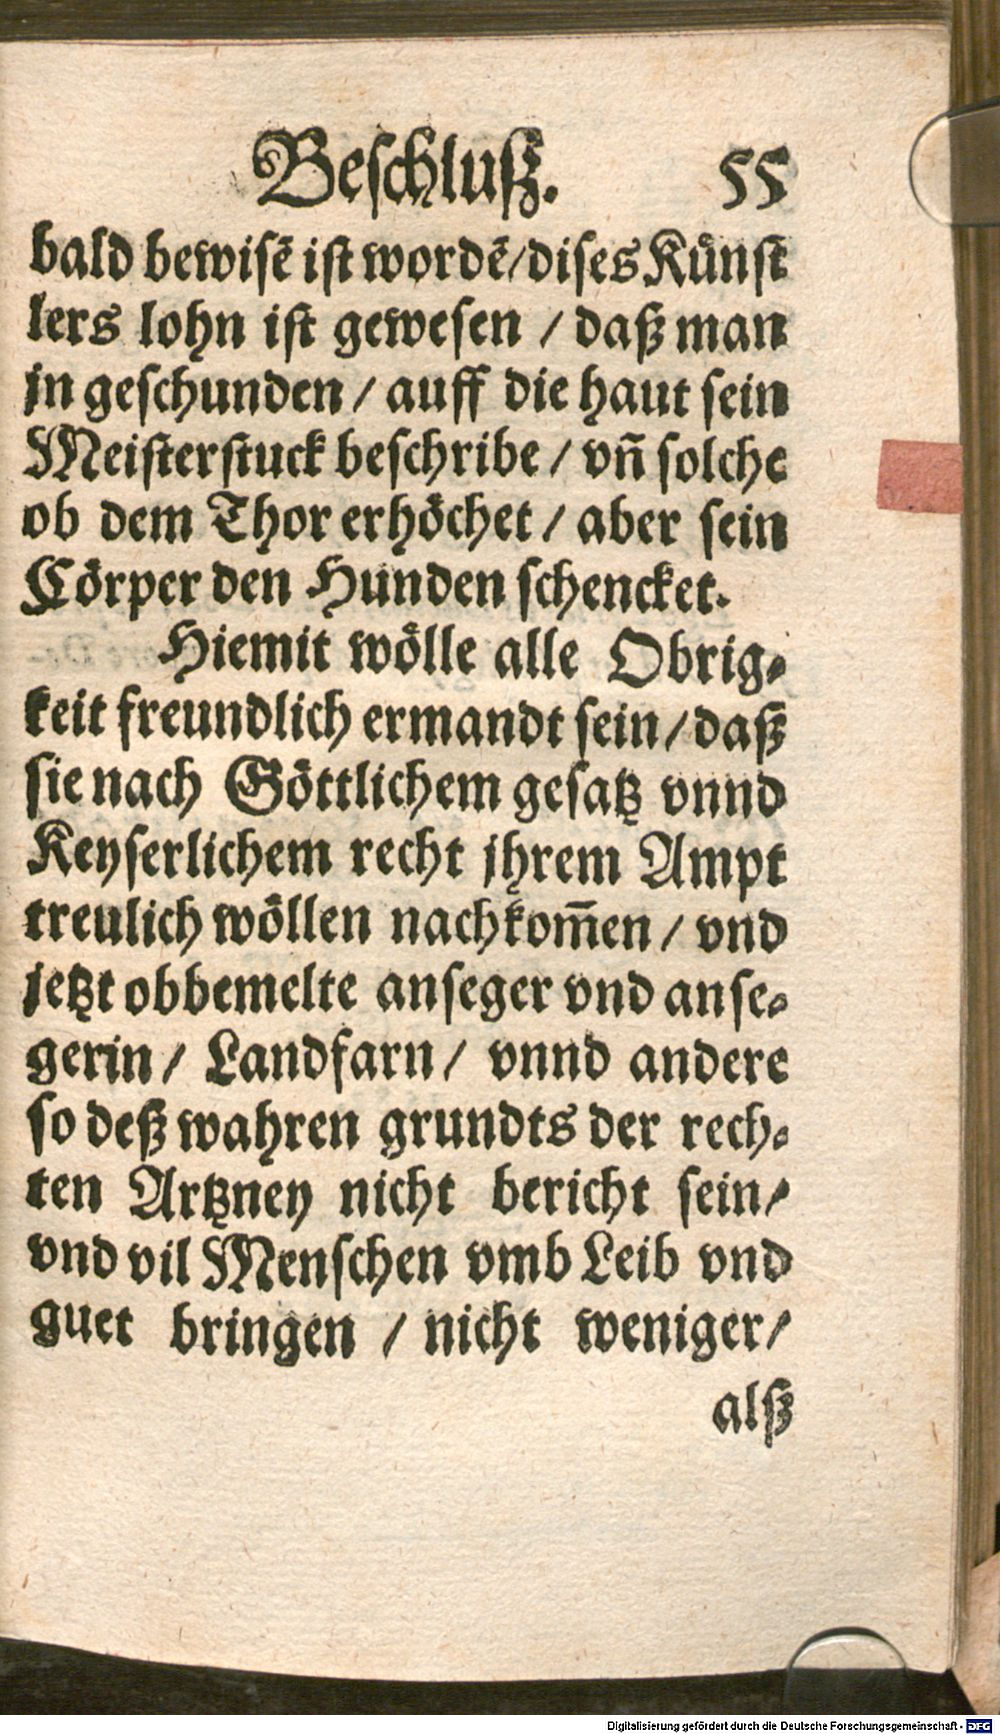 Beschluß. 55
bald bewisē ist wordē/dises Künst
lers lohn ist gewesen / daß man
jn geschunden / auff die haut sein
Meisterstuck beschribe / vñ solche
ob dem Thor erhöchet / aber sein
Cörper den Hunden schencket.
Hiemit wölle alle Obrig-
keit freundlich ermandt sein / daß
sie nach Göttlichem gesatz vnnd
Keyserlichem recht jhrem Ampt
treulich wöllen nachkom̄en / vnd
jetzt obbemelte anseger vnd anse-
gerin / Landfarn / vnnd andere
so deß wahren grundts der rech-
ten Artzney nicht bericht sein/
vnd vil Menschen vmb Leib vnd
guet bringen / nicht weniger/
alß
Digitalisierung gefördert durch die Deutsche Forschungsgemeinschaft - DFG